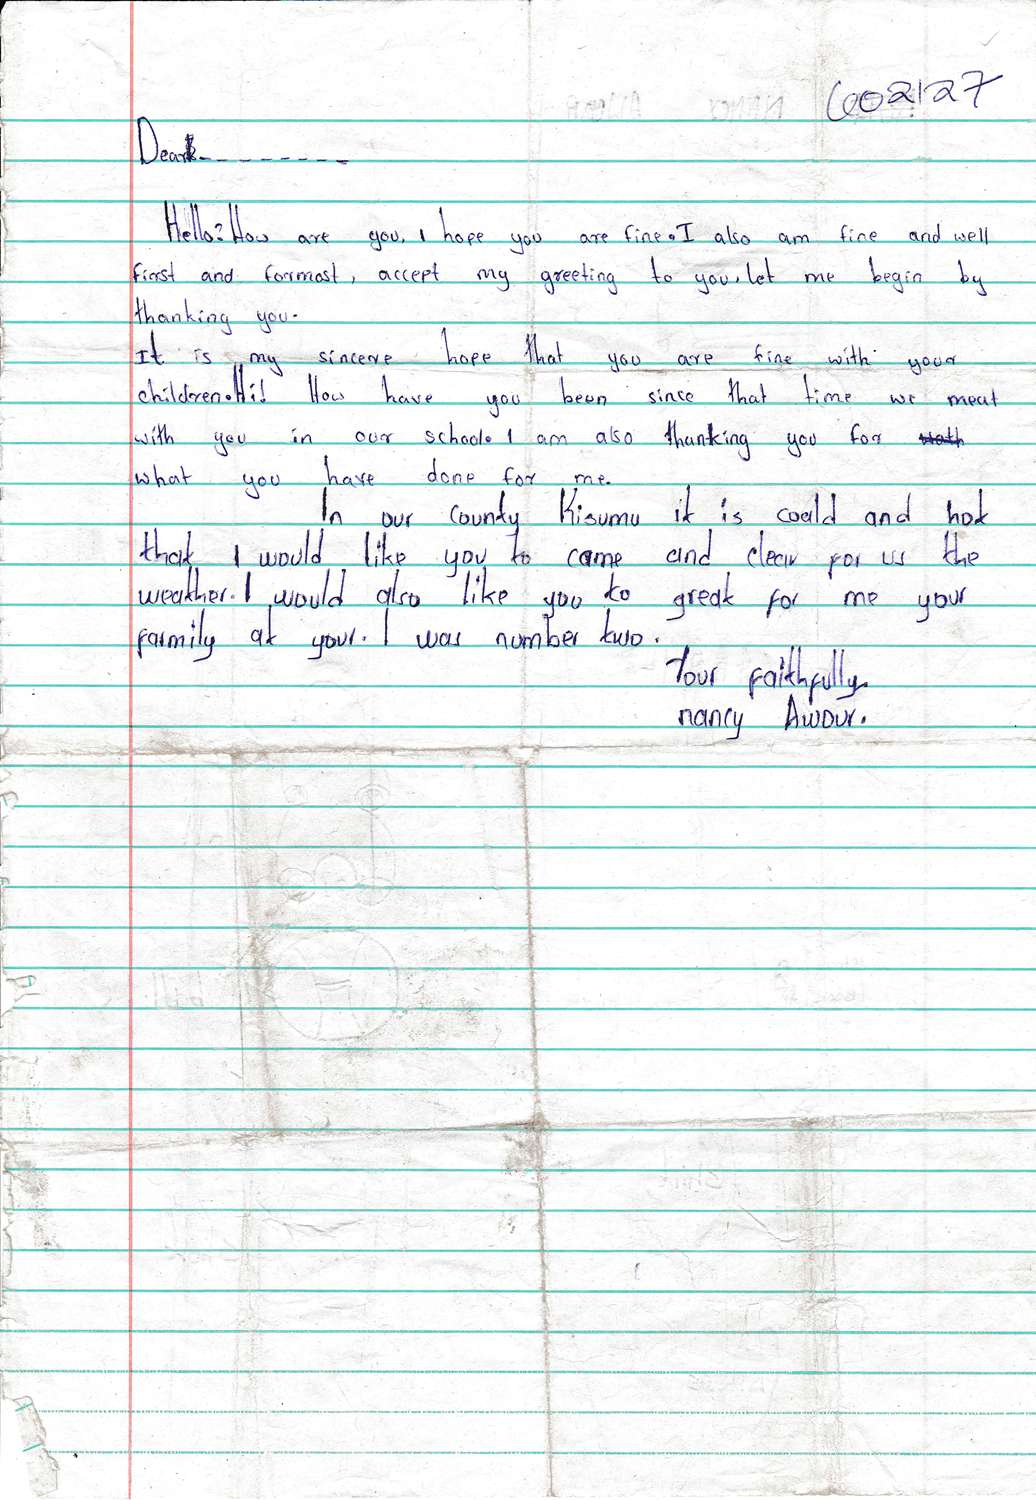 6002127
Dear---------
Hello? How are you, I hope you are fine. I also am fine and well
first and formost, accept my greeting to you. let me begin by
thanking you.
It is my sincere hope that you are fine with your
children. Hi! How have you been since that time we meat
with you in our school. I am also thanking you for
what you have done for me.
In our county Kisumu it is coald and hot
that I would like you to came and clear for us the
weather. I would also like you to great for me your
farmily at your. I was number two.
Your faithfully.
nancy Awour.